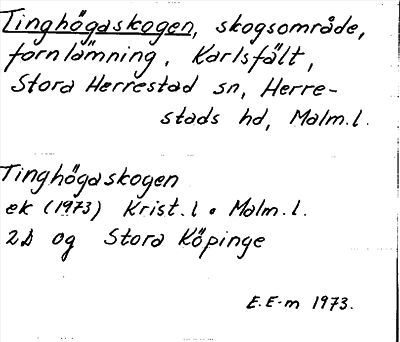 Tinghögaskogen, skogsområde,
fornlämning, Karlsfält,
Stora Herrestad sn, Herre-
stads hd, Malm.l.
Tinghögaskogen
ek (1973) Krist.l o Malm.l.
2D og Stora Köpinge
E.E-m 1973.